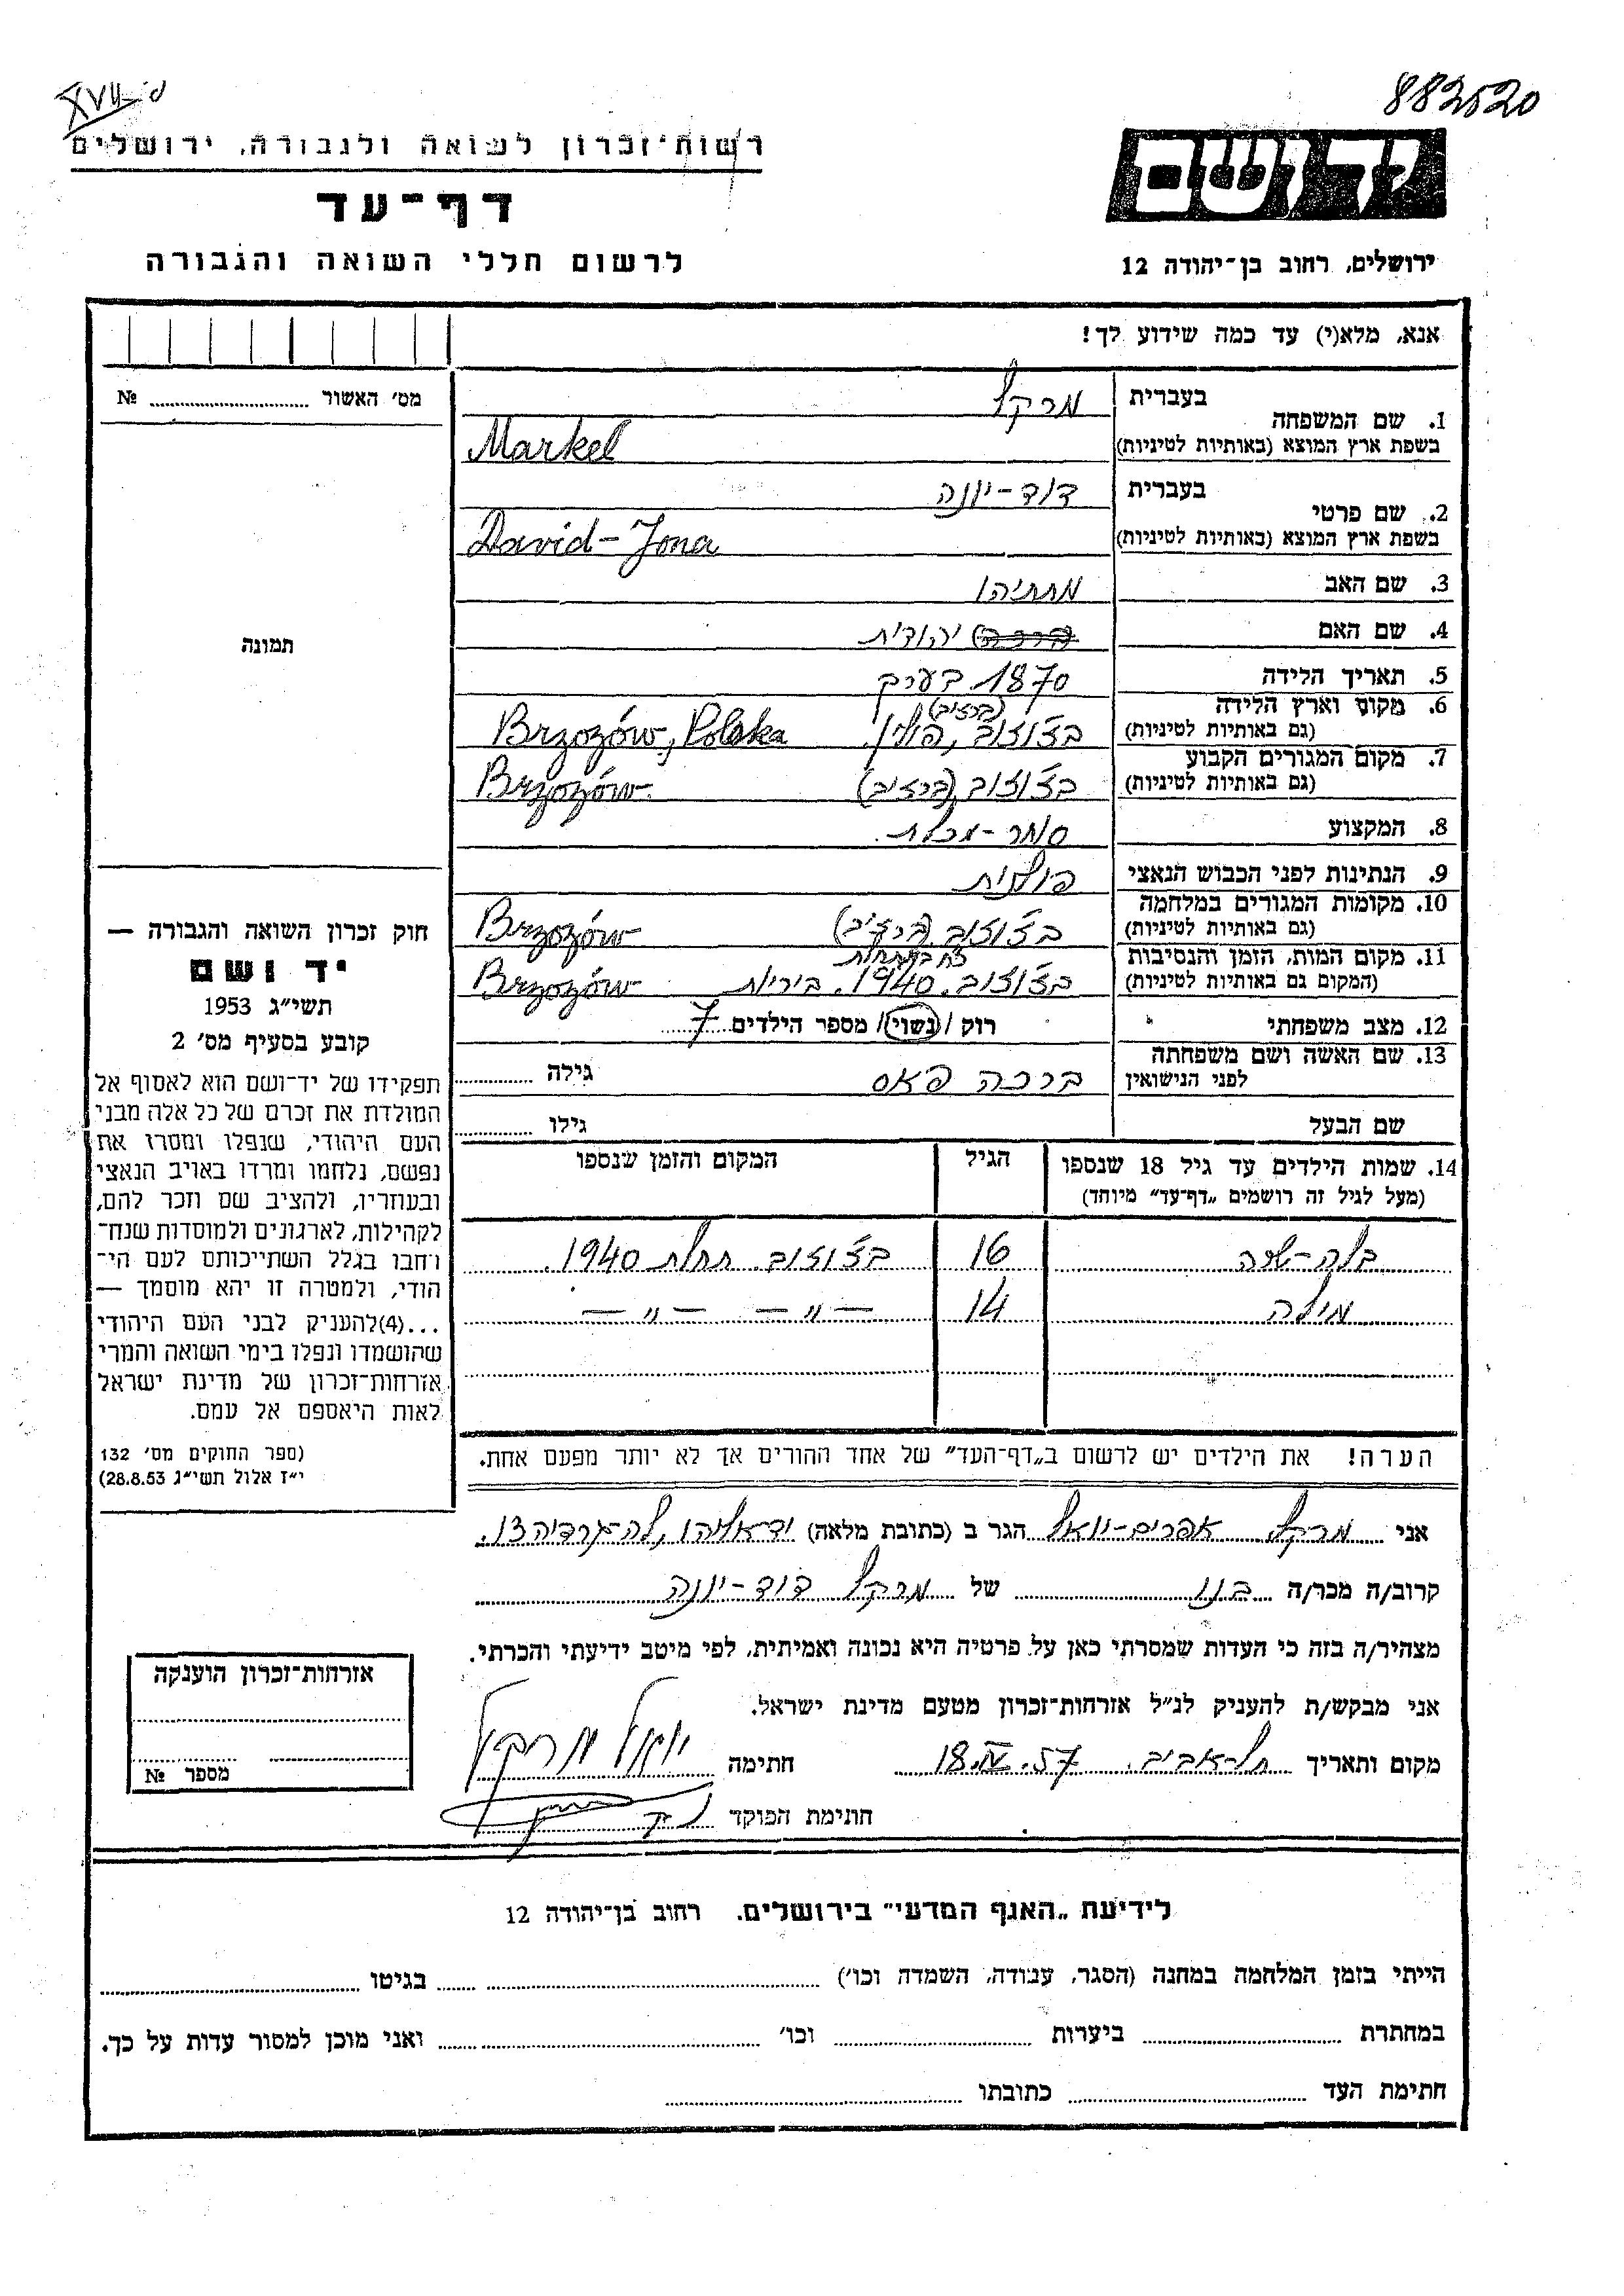 XVII-ם 882520
רשות-זכרון לשואה ולגבורה, ירושלים
יד ושם
דף-עד
לרשום חללי השואה והגבורה
ירושלים, רחוב בן-יהודה 12
אנא, מלא(י) עד כמה שידוע לך!
מס׳ האשור № 
תמונה
1. שם המשפחה
בעברית מרקל
בשפת ארץ המוצא (באותיות לטיניות) Markel
2. שם פרטי
בעברית דוד-יונה
בשפת ארץ המוצא (באותיות לטיניות) David-Jona
3. שם האב מתתיהו
4. שם האם יהודית
5. תאריך הלידה 1870 בערך
6. מקום וארץ הלידה (ברזיב)
(גם באותיות לטיניות) בז'וזוב, פולין. Brzozów, Polska
7. מקום המגורים הקבוע
(גם באותיות לטיניות) בז'וזוב (ברזיב) Brzozów.
8. המקצוע סוחר-מכלת.
9. הנתינות לפני הכבוש הנאצי פולנית
10. מקומות המגורים במלחמה
(גם באותיות לטיניות) בז'וזוב (ברזיב) Brzozów
11. מקום המות, הזמן והנסיבות
(המקום גם באותיות לטיניות) בז'וזוב. 1940. ביריות Brzozów
12. מצב משפחתי רוק / נשוי / מספר הילדים 7
13. שם האשה ושם משפחתה
לפני הנישואין ברכה פאס גילה
שם הבעל גילו
14. שמות הילדים עד גיל 18 שנספו הגיל המקום והזמן שנספו
(מעל לגיל זה רושמים „דף-עד״ מיוחד)
16 בז'וזוב. תחלת 1940.
מילה 14 — " — — " —
הערה! את הילדים יש לרשום ב„דף-העד״ של אחד ההורים אך לא יותר מפעם אחת.
חוק זכרון השואה והגבורה —
יד ושם
תשי״ג 1953
קובע בסעיף מס׳ 2
תפקידו של יד-ושם הוא לאסוף אל
המולדת את זכרם של כל אלה מבני
העם היהודי, שנפלו ומסרו את
נפשם, נלחמו ומרדו באויב הנאצי
ובעוזריו, ולהציב שם וזכר להם,
לקהילות, לארגונים ולמוסדות שנח-
רחבו בגלל השתייכותם לעם הי-
הודי, ולמטרה זו יהא מוסמך —
...(4)להעניק לבני העם היהודי
שהושמדו ונפלו בימי השואה והמרי
אזרחות-זכרון של מדינת ישראל
לאות היאספם אל עמם.
(ספר החוקים מס׳ 132
י״ז אלול תשי״ג 28.8.53)
אני מרקל אפרים-יואל הגר ב (כתובת מלאה) יד אליהו, לה-גרדיה 13.
קרוב/ה מכר/ה בנו של מרקל דוד-יונה
מצהיר/ה בזה כי העדות שמסרתי כאן על פרטיה היא נכונה ואמיתית, לפי מיטב ידיעתי והכרתי.
אני מבקש/ת להעניק לנ״ל אזרחות-זכרון מטעם מדינת ישראל.
מקום ותאריך תל-אביב. 18.IV.57 חתימה יואל מרקל
חתימת הפוקד
אזרחות-זכרון הוענקה
מספר №
לידיעת „האגף המדעי״ בירושלים, רחוב בן-יהודה 12
הייתי בזמן המלחמה במחנה (הסגר, עבודה, השמדה וכו׳) בגיטו
במחתרת ביערות וכו׳ ואני מוכן למסור עדות על כך.
חתימת העד כתובתו